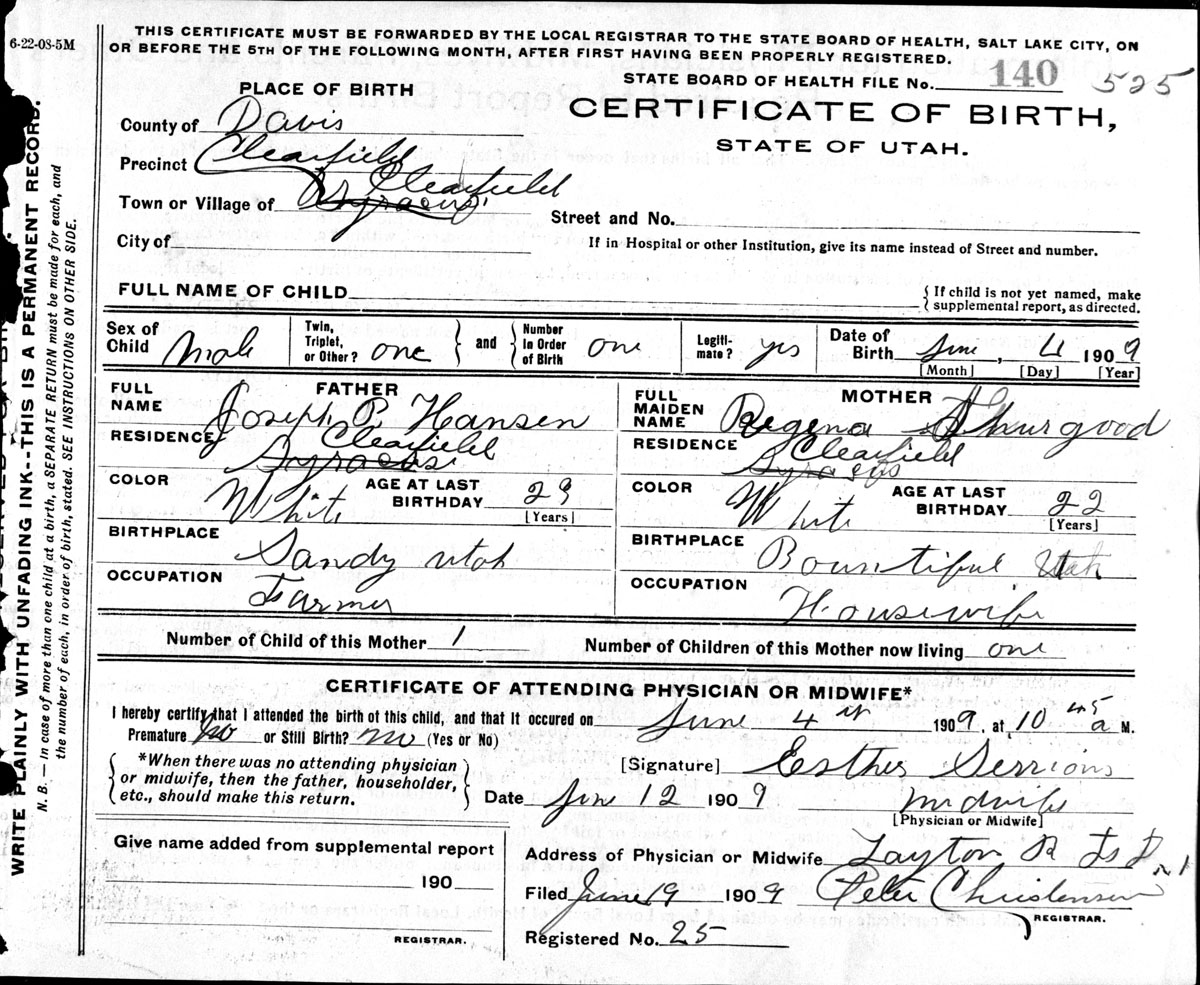 6-22-08-5M
THIS CERTIFICATE MUST BE FORWARDED BY THE LOCAL REGISTRAR TO THE STATE BOARD OF HEALTH, SALT LAKE CITY, ON
OR BEFORE THE 5TH OF THE FOLLOWING MONTH, AFTER FIRST HAVING BEEN PROPERLY REGISTERED.
STATE BOARD OF HEALTH FILE No. 140 525
PLACE OF BIRTH
CERTIFICATE OF BIRTH,
STATE OF UTAH.
County of Davis
Precinct Clearfield
Clearfield
Town or Village of Syracus
Street and No.
City of
If in Hospital or other Institution, give its name instead of Street and number.
FULL NAME OF CHILD
{ If child is not yet named, make
supplemental report, as directed.
Sex of Child Male
Twin, Triplet, or Other? one } and { Number in Order of Birth one
Legiti- mate? yes
Date of Birth June, 4 1909
[Month] [Day] [Year]
FATHER
FULL NAME Joseph P. Hansen
RESIDENCE Clearfield
Syracus
COLOR White AGE AT LAST BIRTHDAY 23
[Years]
BIRTHPLACE Sandy Utah
OCCUPATION Farmer
MOTHER
FULL MAIDEN NAME Regena Thurgood
RESIDENCE Clearfield
Syracus
COLOR White AGE AT LAST BIRTHDAY 22
[Years]
BIRTHPLACE Bountiful Utah
OCCUPATION Housewife
Number of Child of this Mother 1
Number of Children of this Mother now living one
CERTIFICATE OF ATTENDING PHYSICIAN OR MIDWIFE*
I hereby certify that I attended the birth of this child, and that it occured on June 4th 1909, at 10 45 a M.
Premature No or Still Birth? no (Yes or No)
{ *When there was no attending physician
or midwife, then the father, householder,
etc., should make this return. }
[Signature] Esther Sessions
Date June 12 1909 Midwife
[Physician or Midwife]
Give name added from supplemental report
190
REGISTRAR.
Address of Physician or Midwife Layton R F D N 1
Filed June 19 1909 Peter Christensen
REGISTRAR.
Registered No. 25
WRITE PLAINLY WITH UNFADING INK--THIS IS A PERMANENT RECORD.
N. B. — In case of more than one child at a birth, a SEPARATE RETURN must be made for each, and
the number of each, in order of birth, stated. SEE INSTRUCTIONS ON OTHER SIDE.